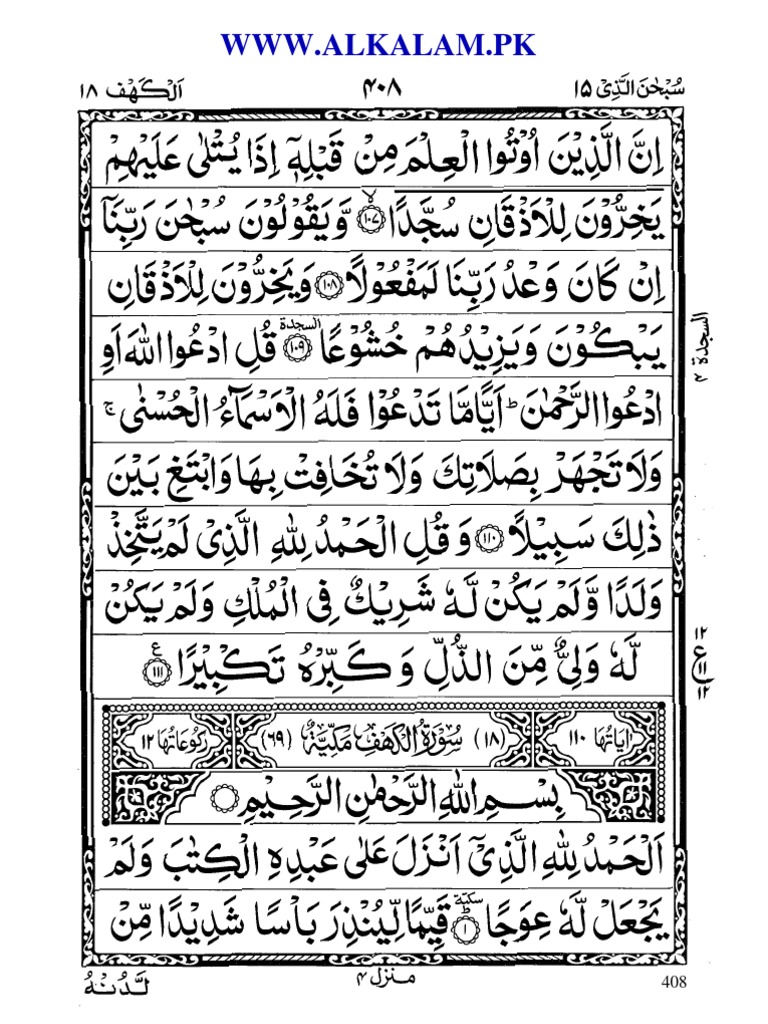 WWW.ALKALAM.PK
سُبْحٰنَ الَّذِیْۤ ۱۵
۴۰۸
اَلْـكَـهْـف ۱۸
اِنَّ الَّذِیْنَ اُوْتُوا الْعِلْمَ مِنْ قَبْلِهٖۤ اِذَا یُتْلٰى عَلَیْهِمْ
یَخِرُّوْنَ لِلْاَذْقَانِ سُجَّدًا ۙ﴿۱۰۷﴾ وَّیَقُوْلُوْنَ سُبْحٰنَ رَبِّنَاۤ
اِنْ كَانَ وَعْدُ رَبِّنَا لَمَفْعُوْلًا ﴿۱۰۸﴾ وَیَخِرُّوْنَ لِلْاَذْقَانِ
یَبْكُوْنَ وَیَزِیْدُهُمْ خُشُوْعًا السجدة ﴿۱۰۹﴾ قُلِ ادْعُوا اللّٰهَ اَوِ
السجدة ۴
ادْعُوا الرَّحْمٰنَ ؕ اَیًّا مَّا تَدْعُوْا فَلَهُ الْاَسْمَآءُ الْحُسْنٰى ۚ
وَلَا تَجْهَرْ بِصَلَاتِكَ وَلَا تُخَافِتْ بِهَا وَابْتَغِ بَیْنَ
ذٰلِكَ سَبِیْلًا ﴿۱۱۰﴾ وَ قُلِ الْحَمْدُ لِلّٰهِ الَّذِیْ لَمْ یَتَّخِذْ
وَلَدًا وَّلَمْ یَكُنْ لَّهٗ شَرِیْكٌ فِی الْمُلْكِ وَلَمْ یَكُنْ
لَّهٗ وَلِیٌّ مِّنَ الذُّلِّ وَ كَبِّرْهُ تَكْبِیْرًا ع ﴿۱۱۱﴾
۱۲
ع ۱۱
۱۲
اٰیَاتُهَا ۱۱۰
(۱۸) سُوْرَةُ الْكَهْفِ مَكِّیَّةٌ (۶۹)
رُكُوْعَاتُهَا ۱۲
بِسْمِ اللّٰهِ الرَّحْمٰنِ الرَّحِیْمِ
اَلْحَمْدُ لِلّٰهِ الَّذِیْۤ اَنْزَلَ عَلٰى عَبْدِهِ الْكِتٰبَ وَلَمْ
یَجْعَلْ لَّهٗ عِوَجًا ؕسكتة ﴿۱﴾ قَیِّمًا لِّیُنْذِرَ بَاْسًا شَدِیْدًا مِّنْ
لَّدُنْهُ
منزل ۴
408